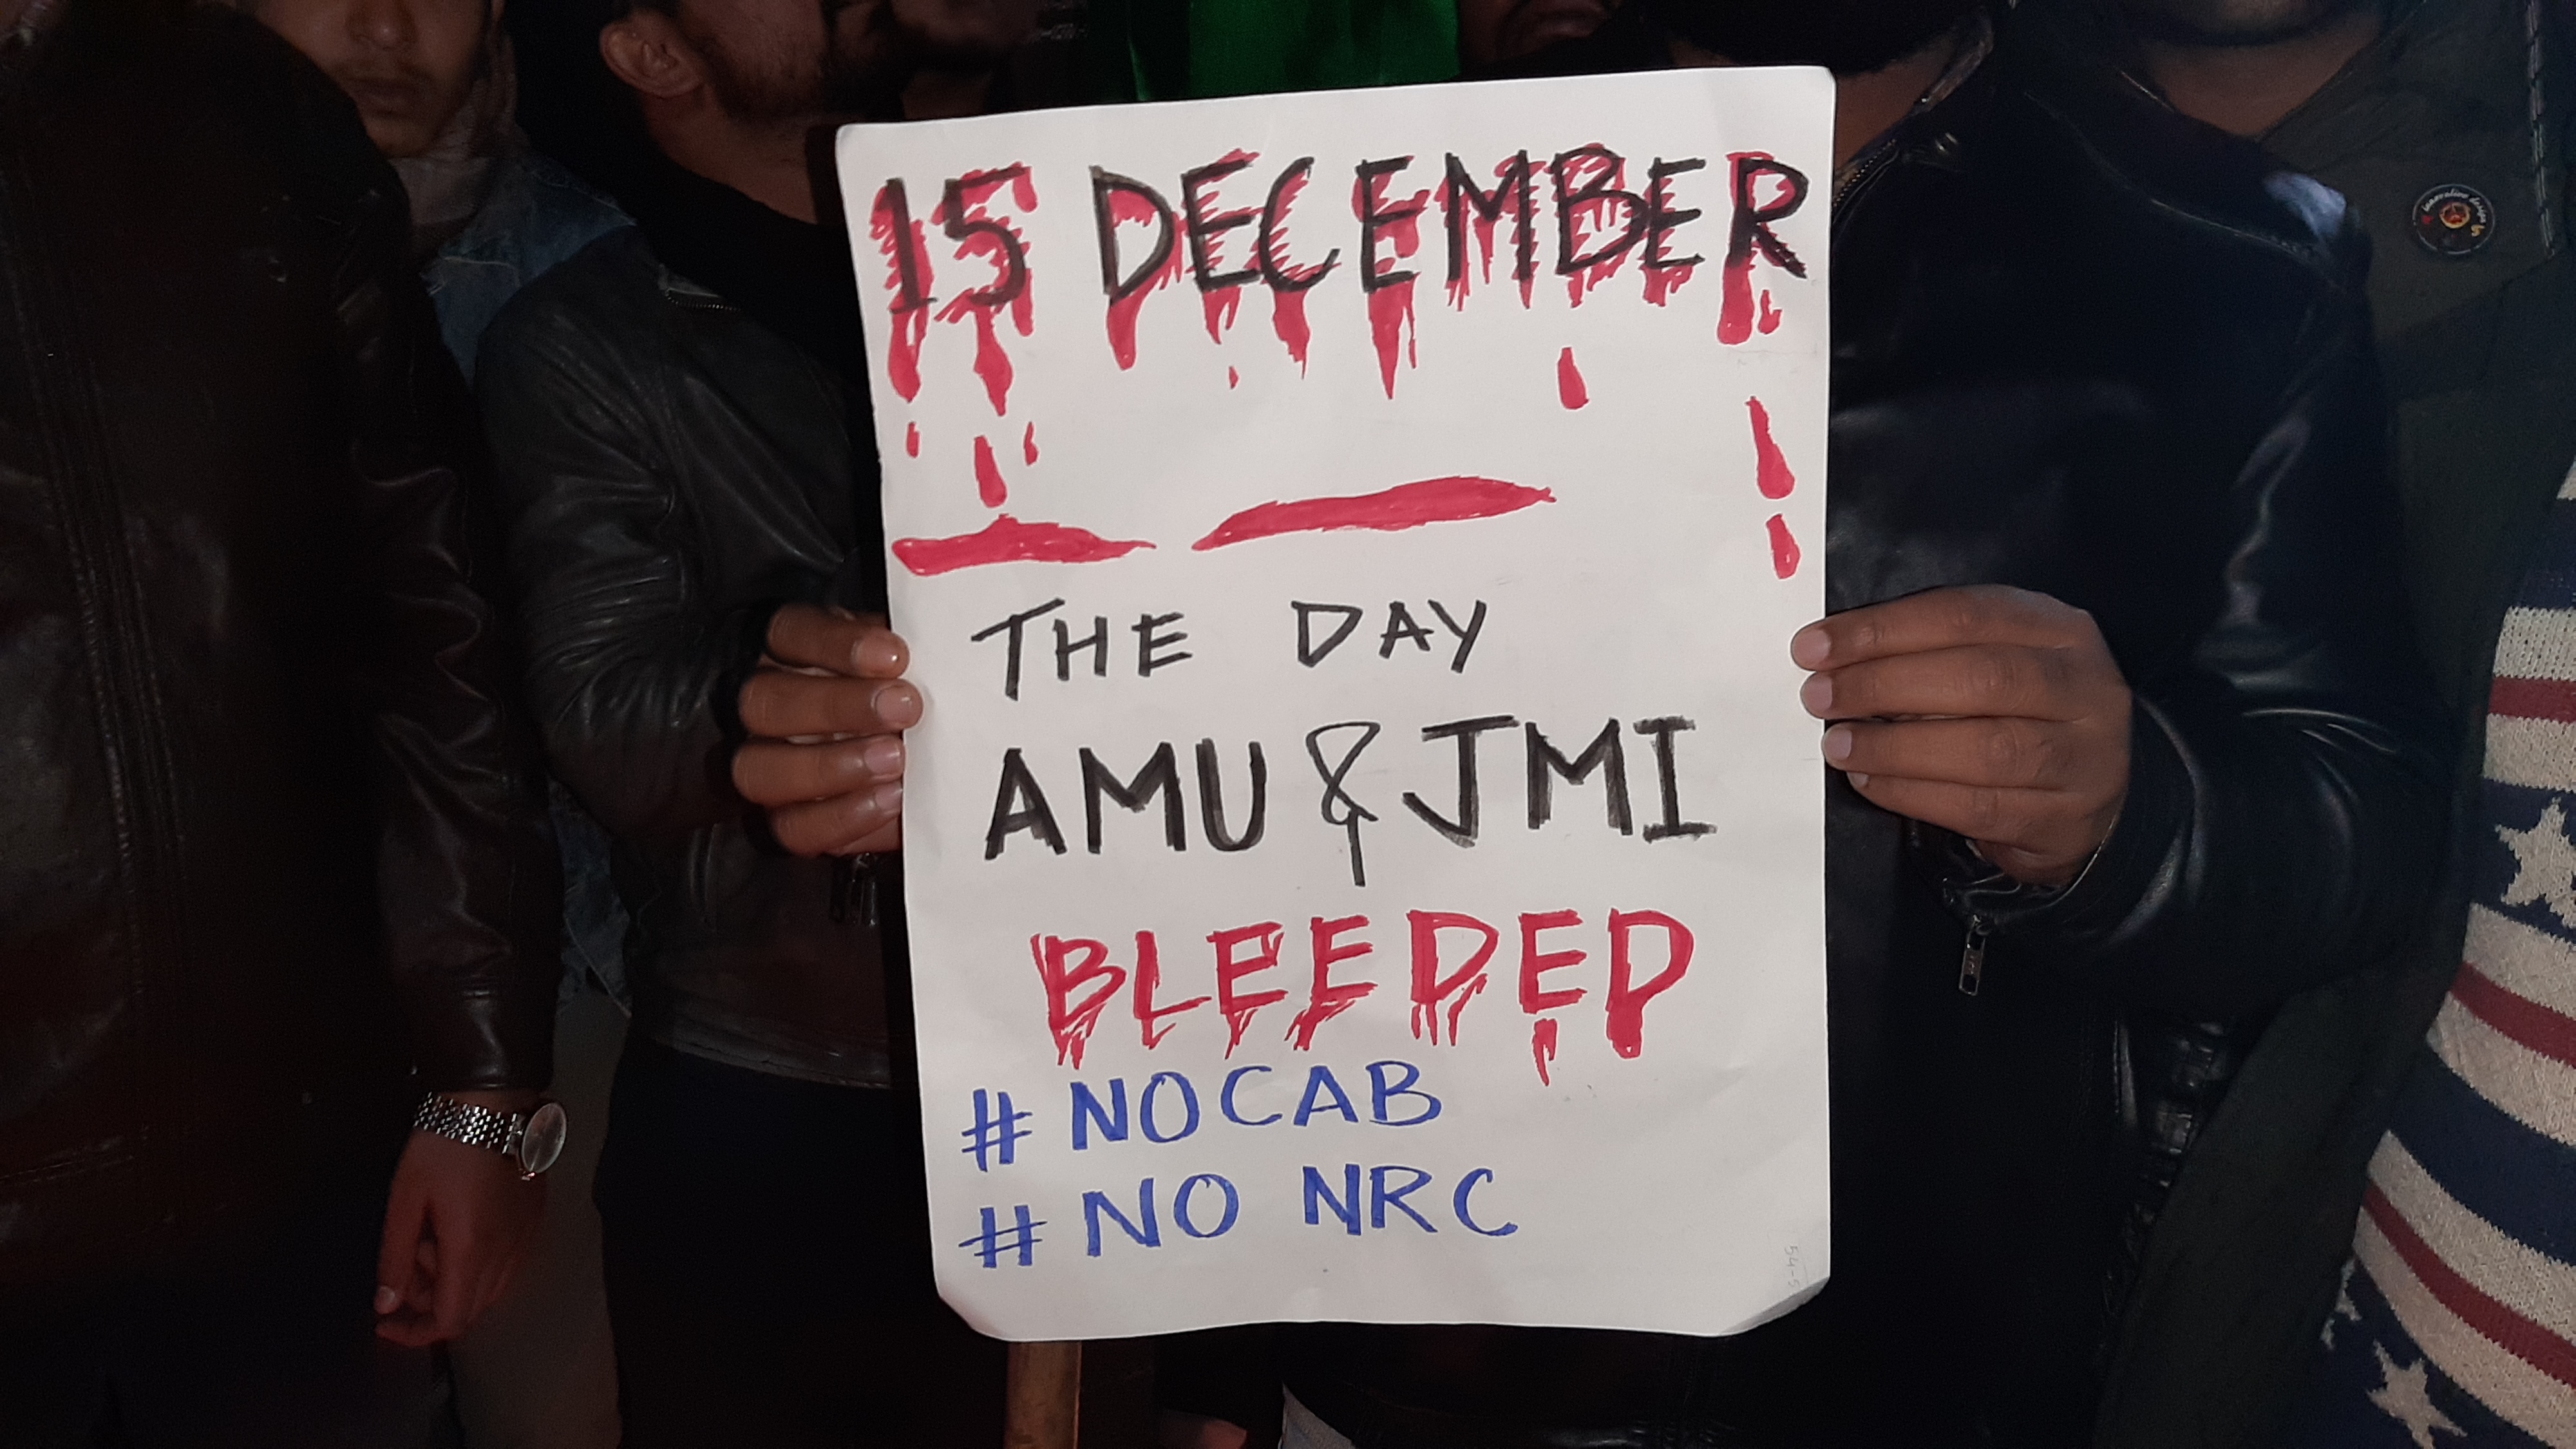 15 DECEMBER
THE DAY
AMU & JMI
BLEEDED
# NOCAB
# NO NRC
innovative design